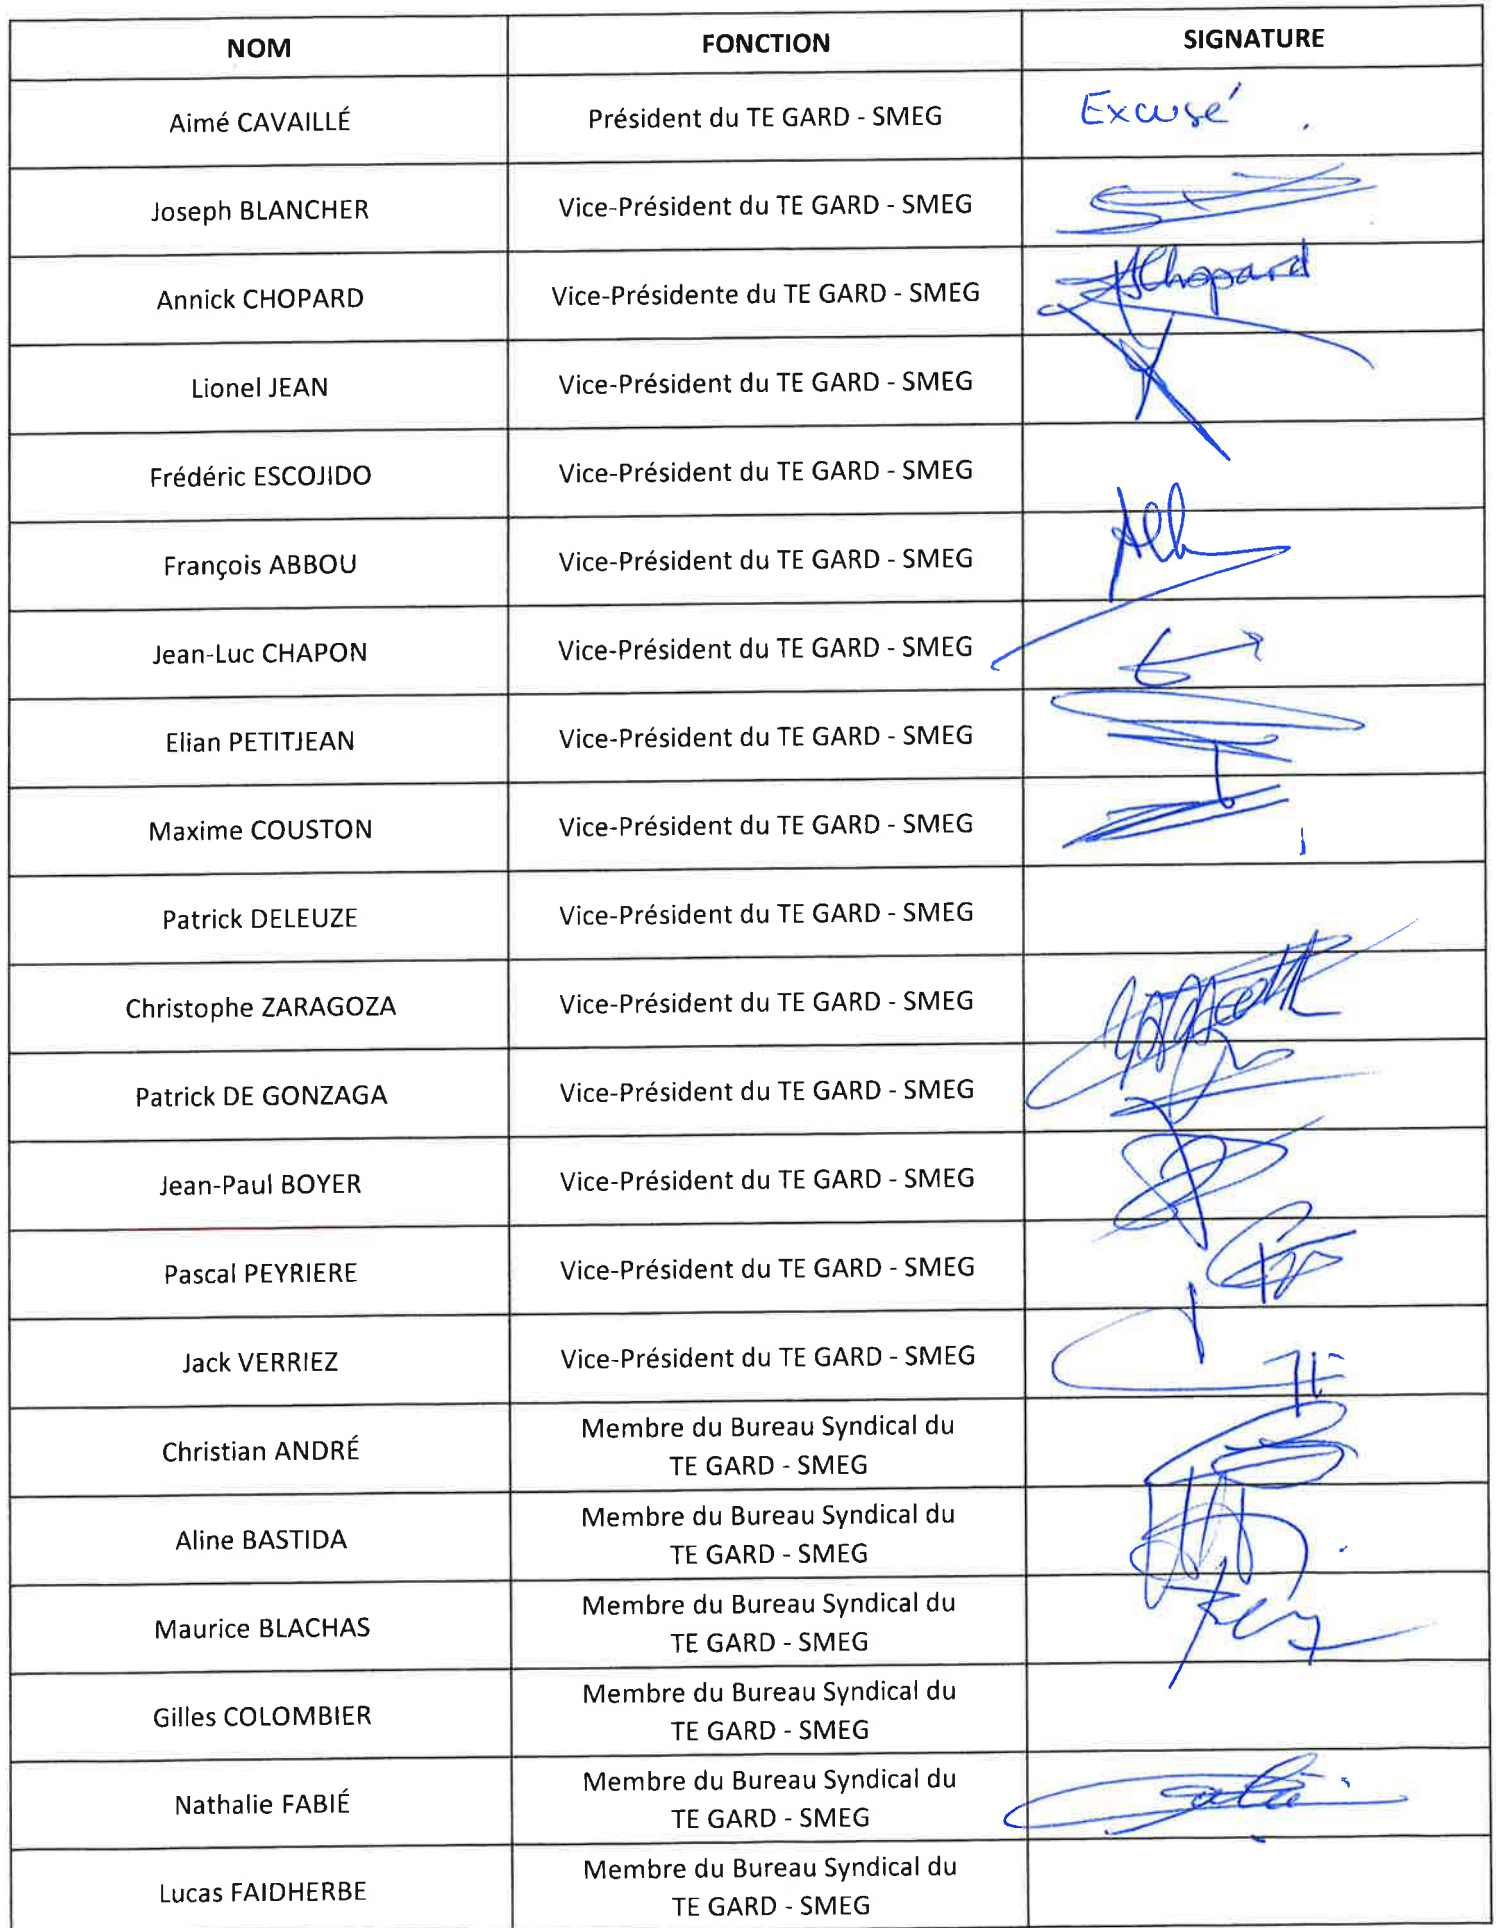 NOM FONCTION SIGNATURE
Aimé CAVAILLÉ Président du TE GARD - SMEG Excusé.
Joseph BLANCHER Vice-Président du TE GARD - SMEG
Annick CHOPARD Vice-Présidente du TE GARD - SMEG AChopard
Lionel JEAN Vice-Président du TE GARD - SMEG
Frédéric ESCOJIDO Vice-Président du TE GARD - SMEG
François ABBOU Vice-Président du TE GARD - SMEG
Jean-Luc CHAPON Vice-Président du TE GARD - SMEG
Elian PETITJEAN Vice-Président du TE GARD - SMEG
Maxime COUSTON Vice-Président du TE GARD - SMEG
Patrick DELEUZE Vice-Président du TE GARD - SMEG
Christophe ZARAGOZA Vice-Président du TE GARD - SMEG
Patrick DE GONZAGA Vice-Président du TE GARD - SMEG
Jean-Paul BOYER Vice-Président du TE GARD - SMEG
Pascal PEYRIERE Vice-Président du TE GARD - SMEG
Jack VERRIEZ Vice-Président du TE GARD - SMEG
Christian ANDRÉ Membre du Bureau Syndical du
TE GARD - SMEG
Aline BASTIDA Membre du Bureau Syndical du
TE GARD - SMEG
Maurice BLACHAS Membre du Bureau Syndical du
TE GARD - SMEG
Gilles COLOMBIER Membre du Bureau Syndical du
TE GARD - SMEG
Nathalie FABIÉ Membre du Bureau Syndical du
TE GARD - SMEG
Lucas FAIDHERBE Membre du Bureau Syndical du
TE GARD - SMEG